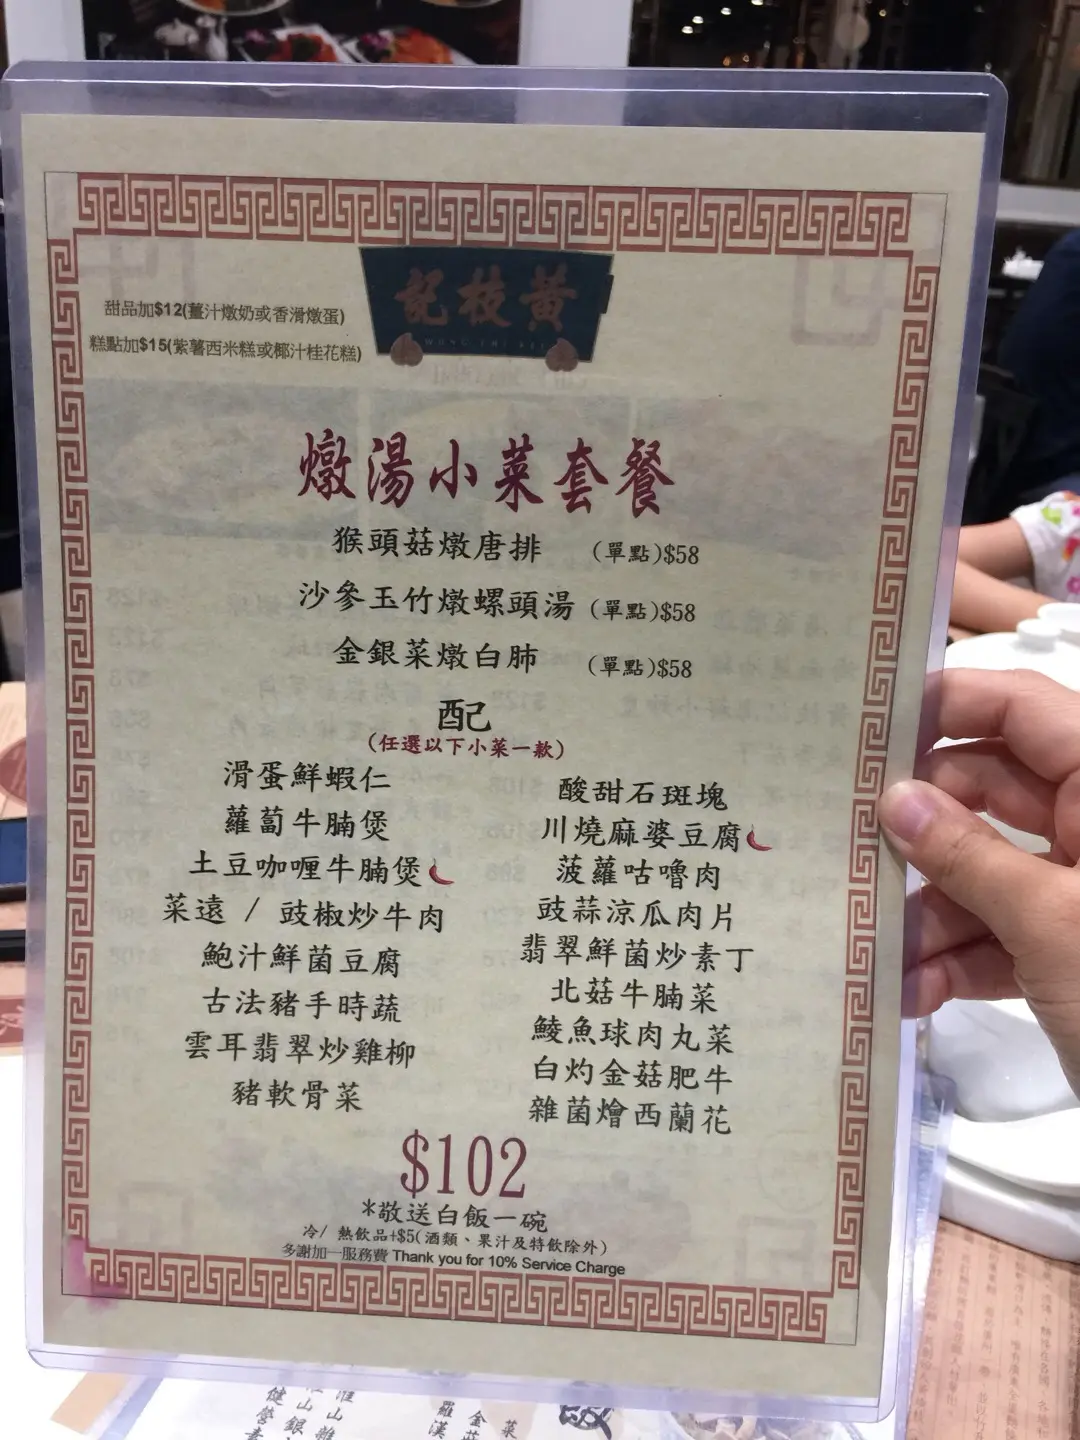 甜品加$12(薑汁燉奶或香滑燉蛋)
糕點加$15(紫薯西米糕或椰汁桂花糕)
記枝黃
WONG CHI KEI
燉湯小菜套餐
猴頭菇燉唐排 (單點)$58
沙參玉竹燉螺頭湯 (單點)$58
金銀菜燉白肺 (單點)$58
配
(任選以下小菜一款)
滑蛋鮮蝦仁
蘿蔔牛腩煲
土豆咖喱牛腩煲
菜遠 / 豉椒炒牛肉
鮑汁鮮菌豆腐
古法豬手時蔬
雲耳翡翠炒雞柳
豬軟骨菜
酸甜石斑塊
川燒麻婆豆腐
菠蘿咕嚕肉
豉蒜涼瓜肉片
翡翠鮮菌炒素丁
北菇牛腩菜
鯪魚球肉丸菜
白灼金菇肥牛
雜菌燴西蘭花
$102
*敬送白飯一碗
冷/ 熱飲品+$5(酒類、果汁及特飲除外)
多謝加一服務費 Thank you for 10% Service Charge